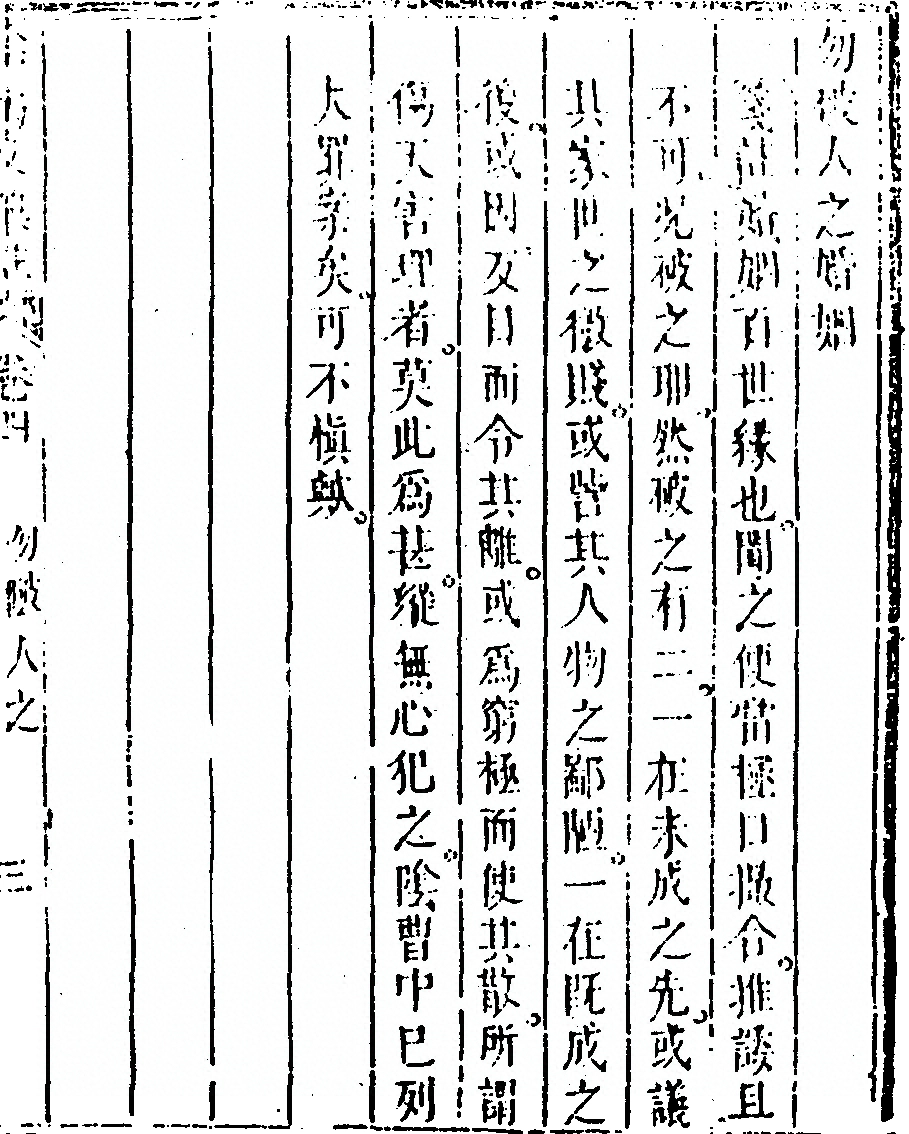 勿破人之婚姻
箋註婚姻百世緣也聞之便當極口攛令推諉且
不可況破之耶然破之有二一在未成之先或議
其家世之微賤或訾其人物之鄙陋一在既成之
後或因反目而令其離或爲窮極而使其散所謂
傷天害理者莫此爲甚縱無心犯之陰曹中已列
大罪案矣可不慎歟
卷四
勿破人之
三